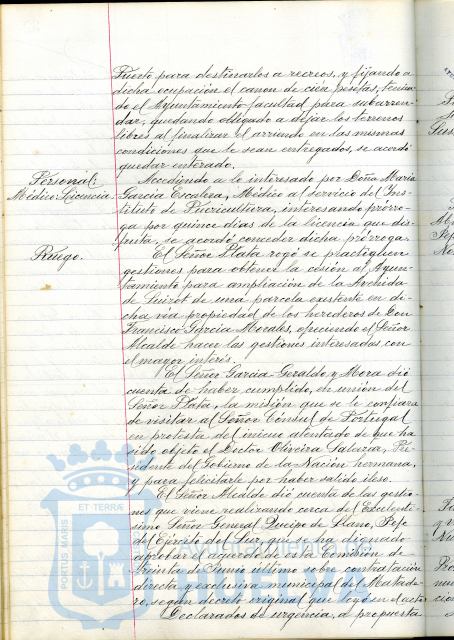 Puerto para destinarlos a recreos, y fijando a
dicha ocupación el canon de cien pesetas, tenien-
do el Ayuntamiento facultad para subarren-
dar, quedando obligado a dejar los terrenos
libres al finalizar el arriendo en las mismas
condiciones que le sean entregados, se acordó
quedar enterado.
Personal:
Médico: Licencia
Accediendo a lo interesado por Doña María
García Escalera, Médico al servicio del Ins-
tituto de Puericultura, interesando prórro-
ga por quince días de la licencia que dis-
fruta, se acordó conceder dicha prórroga.
Ruego.
El Señor Plata rogó se practiquen
gestiones para obtener la cesión al Ayun-
tamiento para ampliación de la Avenida
de Guizot de una parcela existente en di-
cha vía propiedad de los herederos de Don
Francisco García Morales, ofreciendo el Señor
Alcalde hacer las gestiones interesadas con
el mayor interés.
El Señor García-Geraldo y Mora dió
cuenta de haber cumplido, en unión del
Señor Plata, la misión que se le confiara
de visitar al Señor Cónsul de Portugal
en protesta del inicuo atentado de que ha
sido objeto el Doctor Oliveira Salazar, Pre-
sidente del Gobierno de la Nación hermana,
y para felicitarle por haber salido ileso.
El Señor Alcalde dió cuenta de las gestio-
nes que viene realizando cerca del Excelentí-
simo Señor General Queipo de Llano, Jefe
del Ejército del Sur, que se ha dignado
aprobar el acuerdo de la Comisión de
treinta de Junio último sobre contratación
directa y exclusiva municipal del Matade-
ro, según decreto original que leyó en el acto
Declarados de urgencia, a propuesta
PORTUS MARIS ET TERRÆ